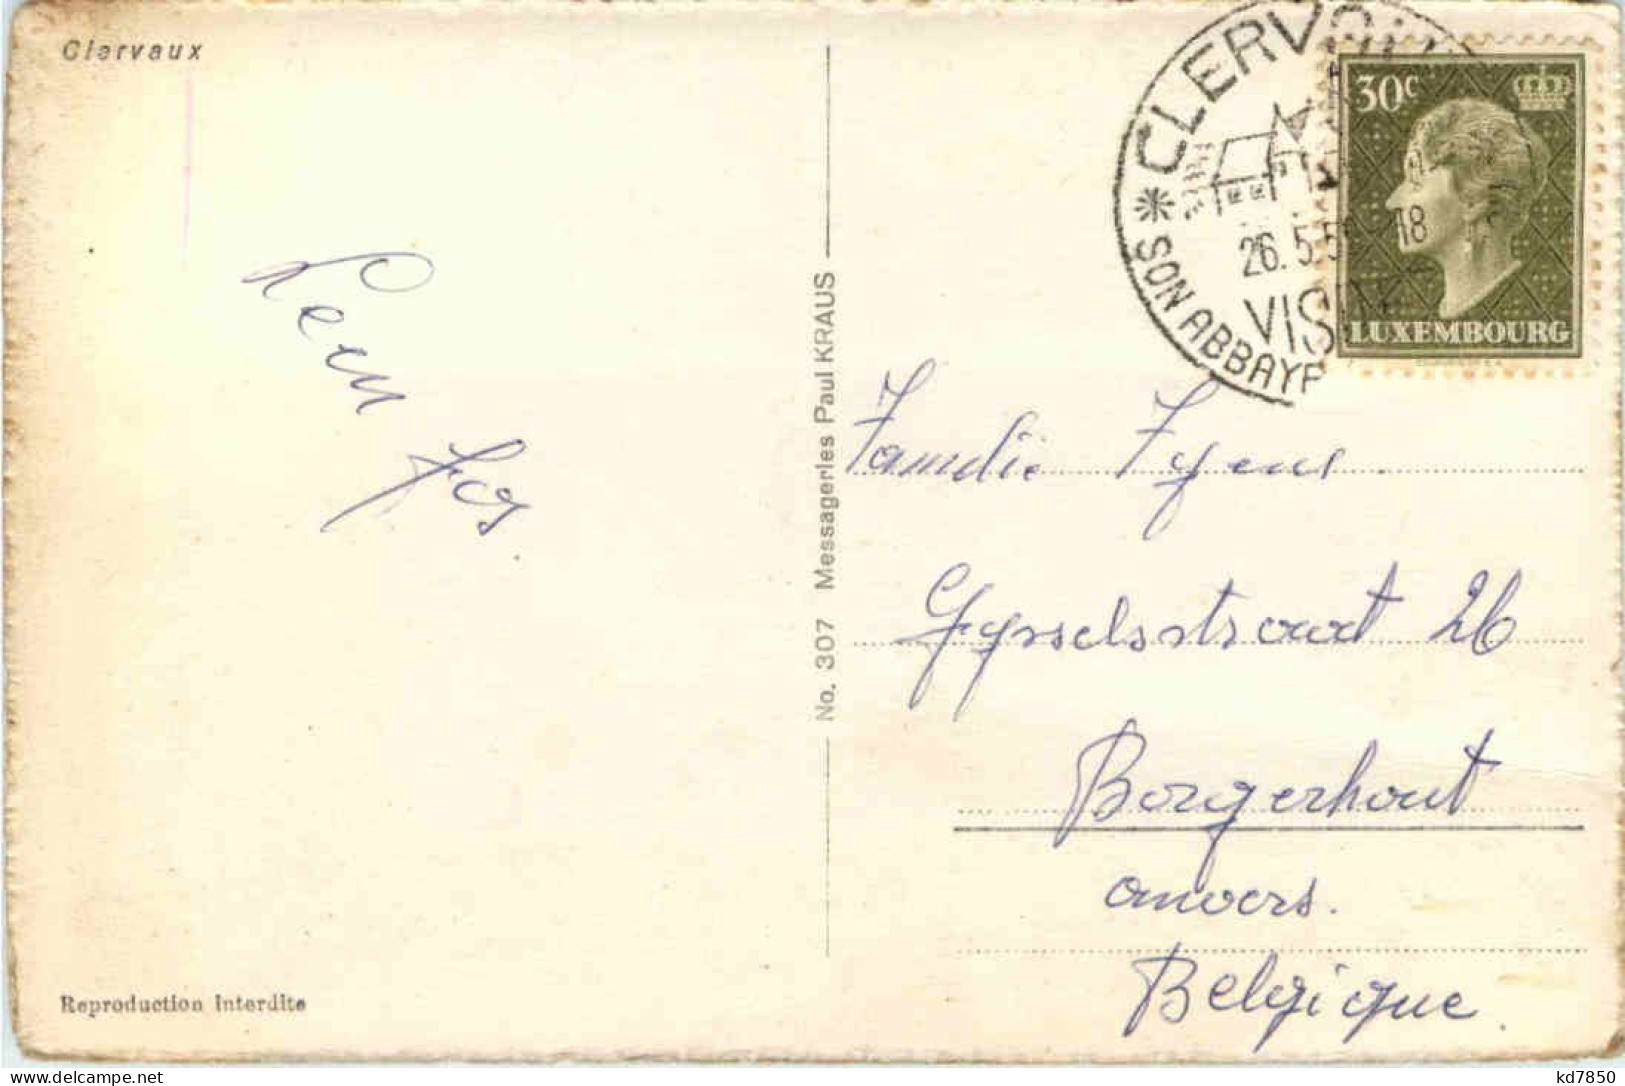 Clervaux
CLERVAUX
26.5.5 18
VISITE
SON ABBAYE
30c
LUXEMBOURG
No. 307 Messageries Paul KRAUS
Familie
Gysselsstraat 26
Borgerhout
anvers.
Belgique.
Reproduction Interdite
kd7850